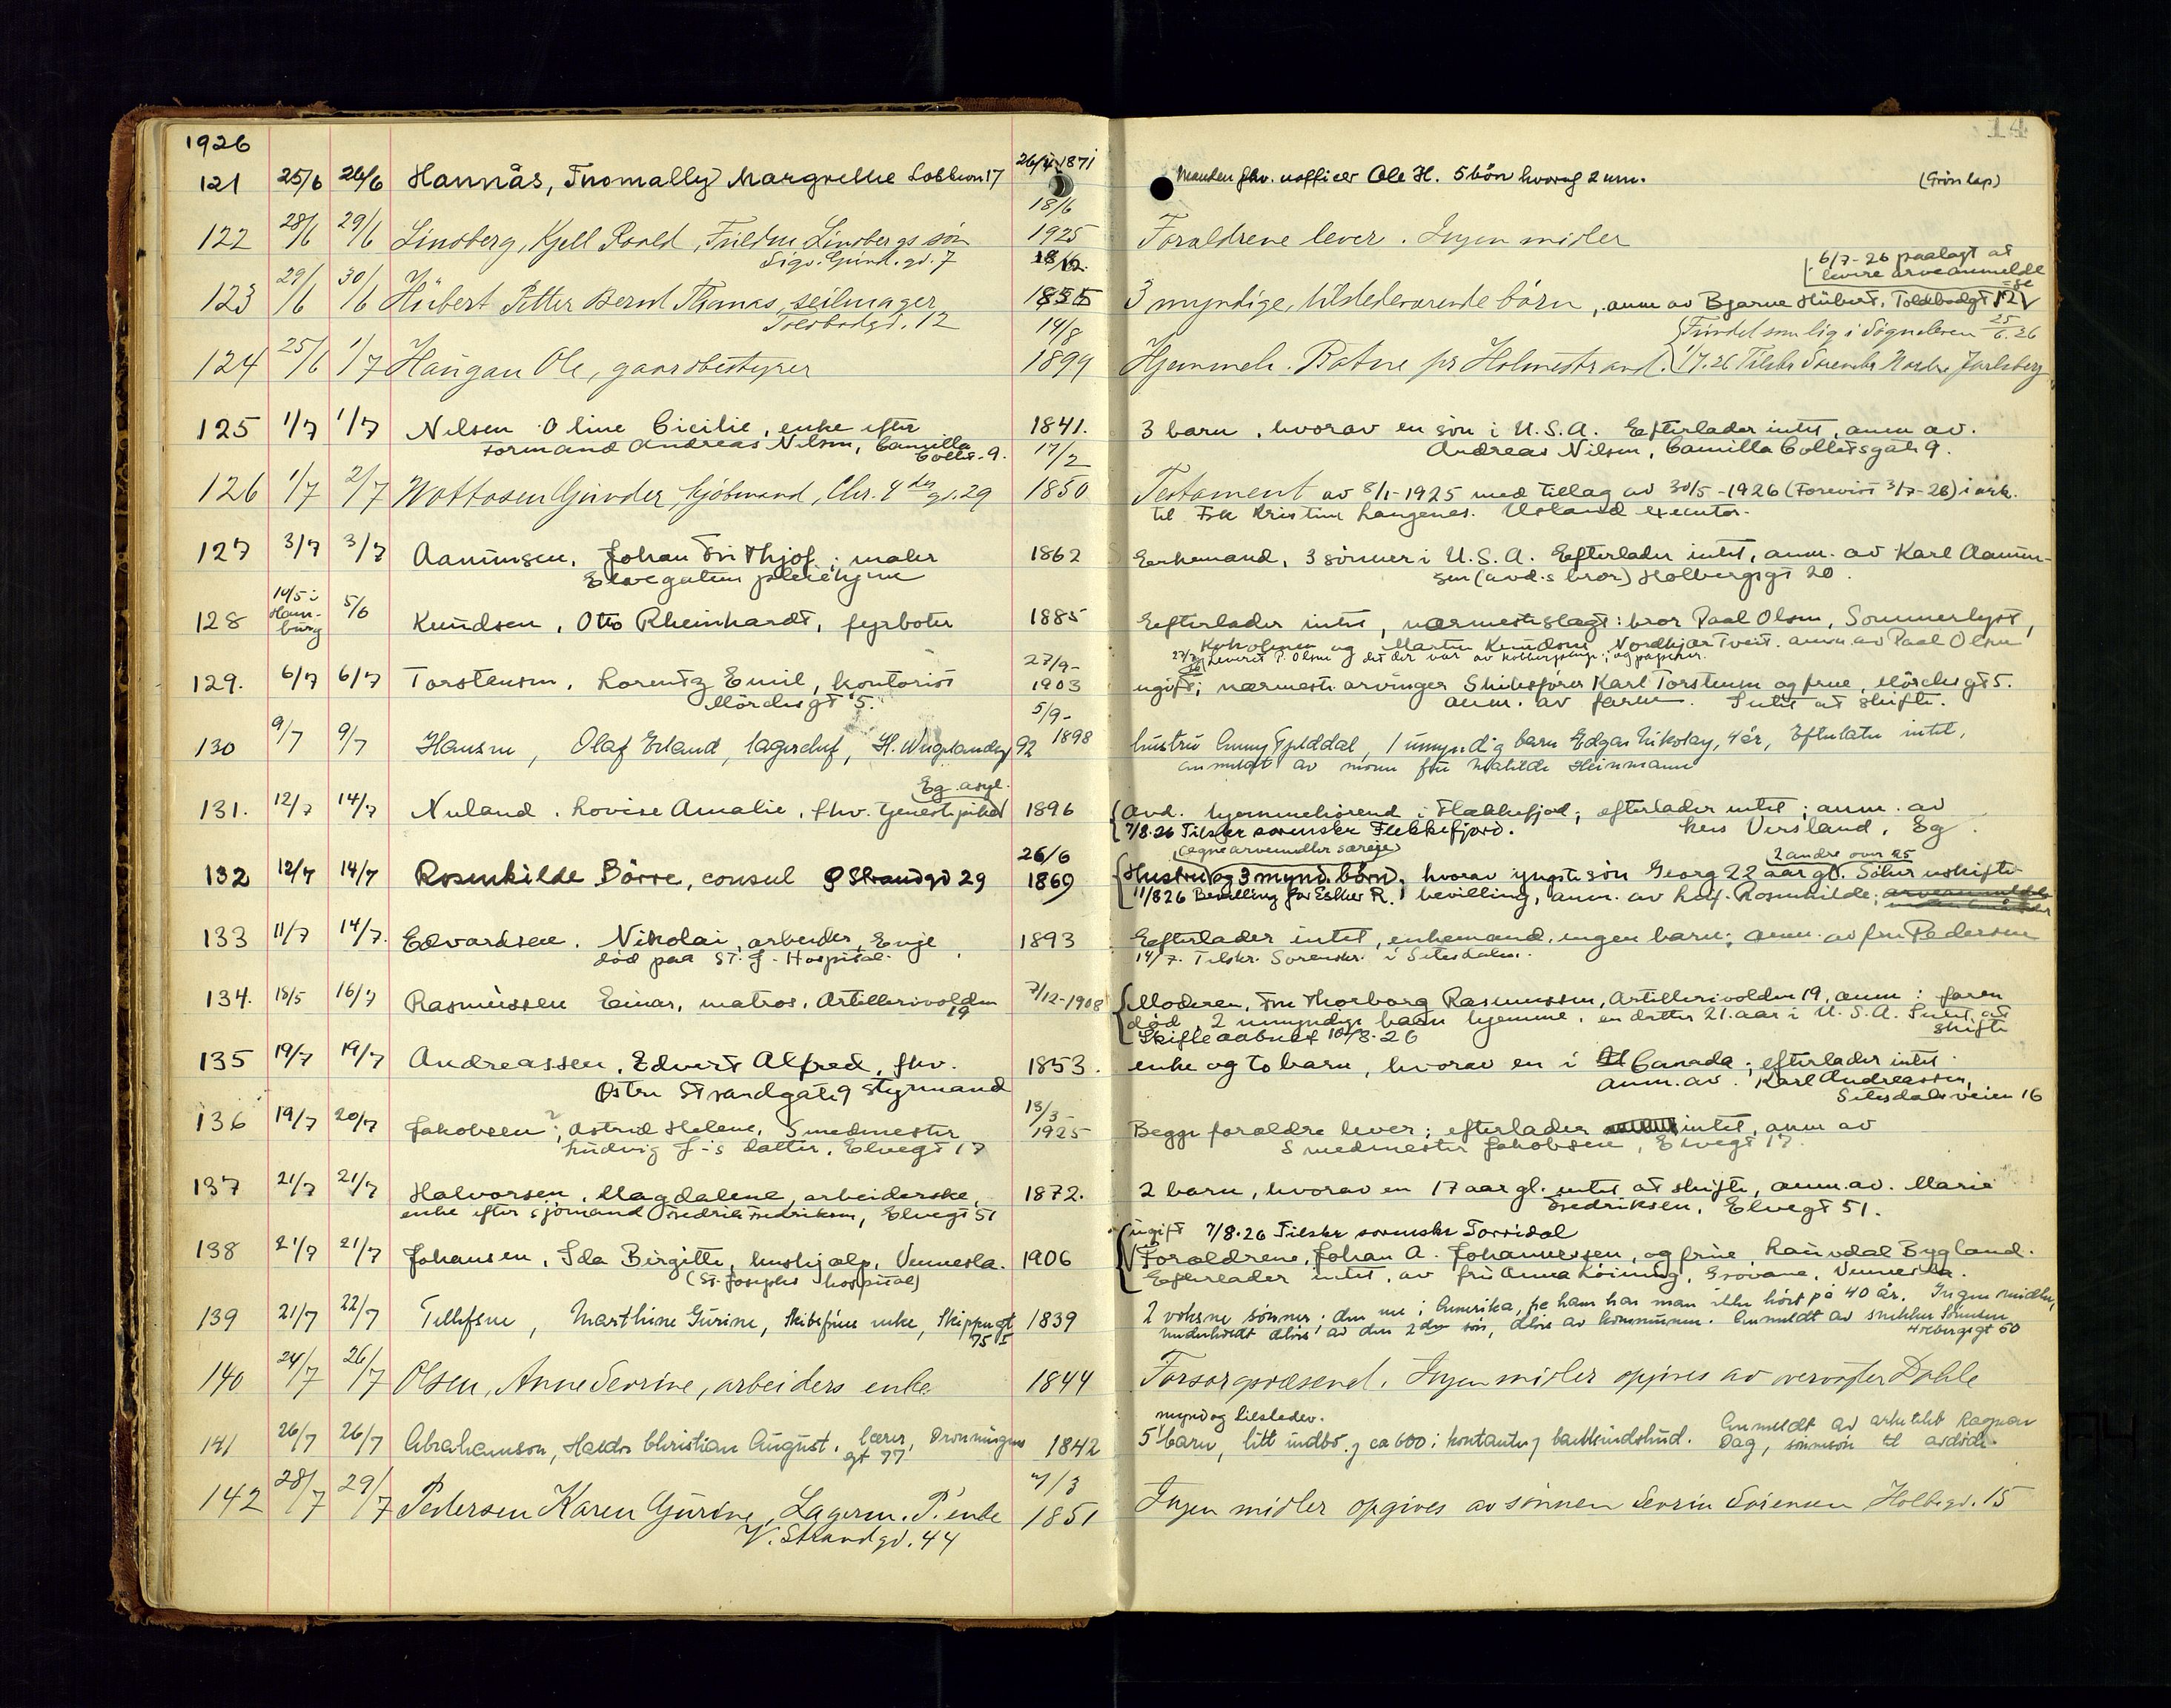 14
1926
26/4 1871
121 25/6 26/6 Hannås, Tnomally Margrethe 17
Manden fhv. uofficer Ole H. 5 børn hvorav 2 um. (Grøn lap)
18/6
122 28/6 29/6 Lindberg, Kjell Roald, Lindbergs søn 1925 Forældrene lever. Ingen midler
Sigv. gd. 7
18/12 6/7-26 paalagt at
levere arveanmeldelse
123 29/6 30/6 Hübert Petter Bernt Thomas, seilmager 1855 3 myndige, tilstedeværende børn, anm av Bjarne Hübert, Toldbodgt 12
Toldbodgd. 12
14/8 Fundet som lig i Søgneelven 25/6.26
124 25/6 1/7 Haugan Ole, gaardbestyrer 1899 Hjemmeh. Botne pr Holmestrand. 1/7.26 Tilskr Sorenskr Nordre Jarlsberg
125 1/7 1/7 Nilsen Oline Cicilie, enke efter 1841. 3 barn, hvorav en søn i U.S.A. Efterlader intet, anm av.
Formand Andreas Nilsen, Camilla Collts. 9. Andreas Nilsen, Camilla Colletsgate 9.
17/2
126 1/7 2/7 Wattosen Gunder, kjøbmand, Chr. 4des gd. 29 1850 Testament av 8/1-1925 med tillæg av 30/5-1926 (Forevist 3/7-26) i ark.
til Frk Kristine Langenes. Usland executor.
127 3/7 3/7 Aamunsen, Johan Frithjof; maler 1862 Enkemand, 3 sønner i U.S.A. Efterlader intet, anm. av Karl Aamun-
Elvegatens pleiehjem sen (avd.s bror) Holbergsgt 20.
14/5 i
Ham-
burg
128 5/6 Knudsen, Otto Rheinhardt, fyrbøter 1885 Efterlader intet, nærmeste slægt: bror Paal Olsen, Sommerlyst,
Kokolmen og Martin Knudsen Nordkjær Tveit. anm. av Paal Olsen
Leveret P. Olsen det der var av og papirer.
27/9-
129. 6/7 6/7 Torstensen, Lorentz Emil, kontorist 1903 ugift; nærmeste arvinger Skibsfører Karl Torstensen og frue, Mørchsgt 5.
Mørchsgt 5. anm. av faren. Intet at skifte.
5/9-
130 9/7 9/7 Hansen, Olaf Erland, lagerchef, H. Wergelandsg 92 1898 hustru Anny Fjelddal, 1 umyndig barn Edgar Nikolay, 4 år, Efterlater intet,
anmeldt av moren fru Mathilde Heinmann
Eg. asyl.
131. 12/7 14/7 Nuland, Lovise Amalie, fhv. tjenestepike 1896 Avd. hjemmehørend i Flekkefjord; efterlader intet; anm. av
7/8.26 Tilskr sorenskr Flekkefjord. Versland, Eg.
(egne arvemidler særeie) 2 andre over 25
26/6
132 12/7 14/7 Rosenkilde Børre, consul Ø Strandgd 29 1869 Hustru og 3 mynd. børn, hvorav yngste søn Georg 22 aar gl. Søker uskifte-
11/8 26 Bevilling for Esther R. bevilling, anm. av Rosenkilde;
133 11/7 14/7. Edvardsen, Nikolai, arbeider, Evje 1893 Efterlader intet, enkemand, ingen barn; anm. av fru Pedersen
død paa St. J. Hospital. 14/7. Tilskr. Sorenskr. i Setesdalen.
134. 18/5 16/7 Rasmussen Einar, matros, Artillerivolden 19 7/12-1908 Moderen, Fru Thorborg Rasmussen, Artillerivolden 19, anm; faren
død, 2 umyndige barn hjemme, en datter 21. aar i U.S.A. Intet at skifte
Skifte aabnet 10/8.26
135 19/7 19/7 Andreassen, Edvert Alfred, fhv. 1853. enke og to barn, hvorav en i Canada; efterlader intet
Østre Strandgate 9 styrmand anm. av. Karl Andreassen,
Setesdalsveien 16
13/3-
136 19/7 20/7 Jakobsen, Astrid Helene, Smedmester 1925 Begge forældre lever; efterlader intet, anm av
Ludvig J-s datter, Elvegt 17 Smedmester Jakobsen, Elvegt 17.
137 21/7 21/7 Halvorsen, Magdalene, arbeiderske, 1872. 2 barn, hvorav en 17 aar gl. intet at skifte, anm. av. Marie
enke efter sjømand Fredrik Fredriksen, Elvegt 51 Fredriksen, Elvegt 51.
ugift 7/8.26 Tilskr sorenskr Torridal
138 21/7 21/7 Johansen, Ida Birgitte, hushjælp, Vennesla. 1906 Forældrene, Johan A. Johannessen, og frue Bygland.
(St. Josephs hospital) Efterlader intet, av fru Anna, Grovane, Vennesla.
139 21/7 22/7 Tellefsen, Marthine Gurine, Skibsførers enke, Skippergt 75 I 1839 2 voksne sønner; den ene i Amerika, fra ham har man ikke hørt på 40 år. Ingen midler,
underholdt dels av den 2den søn, dels av kommunen. Anmeldt av snekker Tønnesen
Holbergsgt 50
140 24/7 26/7 Olsen, Anne Severine, arbeiders enke 1844 Forsorgsvæsenet. Ingen midler opgives av overvogter Dahle
mynd og tilstedev.
141 26/7 26/7 Abrahamson, Haldor Christian August, lærer, Dronningens gt 77 1842 5 barn, litt indbo, ca 600 i kontanter, bankindskud. Anmeldt av arkitekt Ragnar
Dag, sønnesøn til avdøde.
4/3
142 28/7 29/7 Pedersen Karen Gurine, Lagerm. P. enke 1851 Ingen midler opgives av sønnen Severin Sørensen Holbgd. 15
V. Strandgd. 44